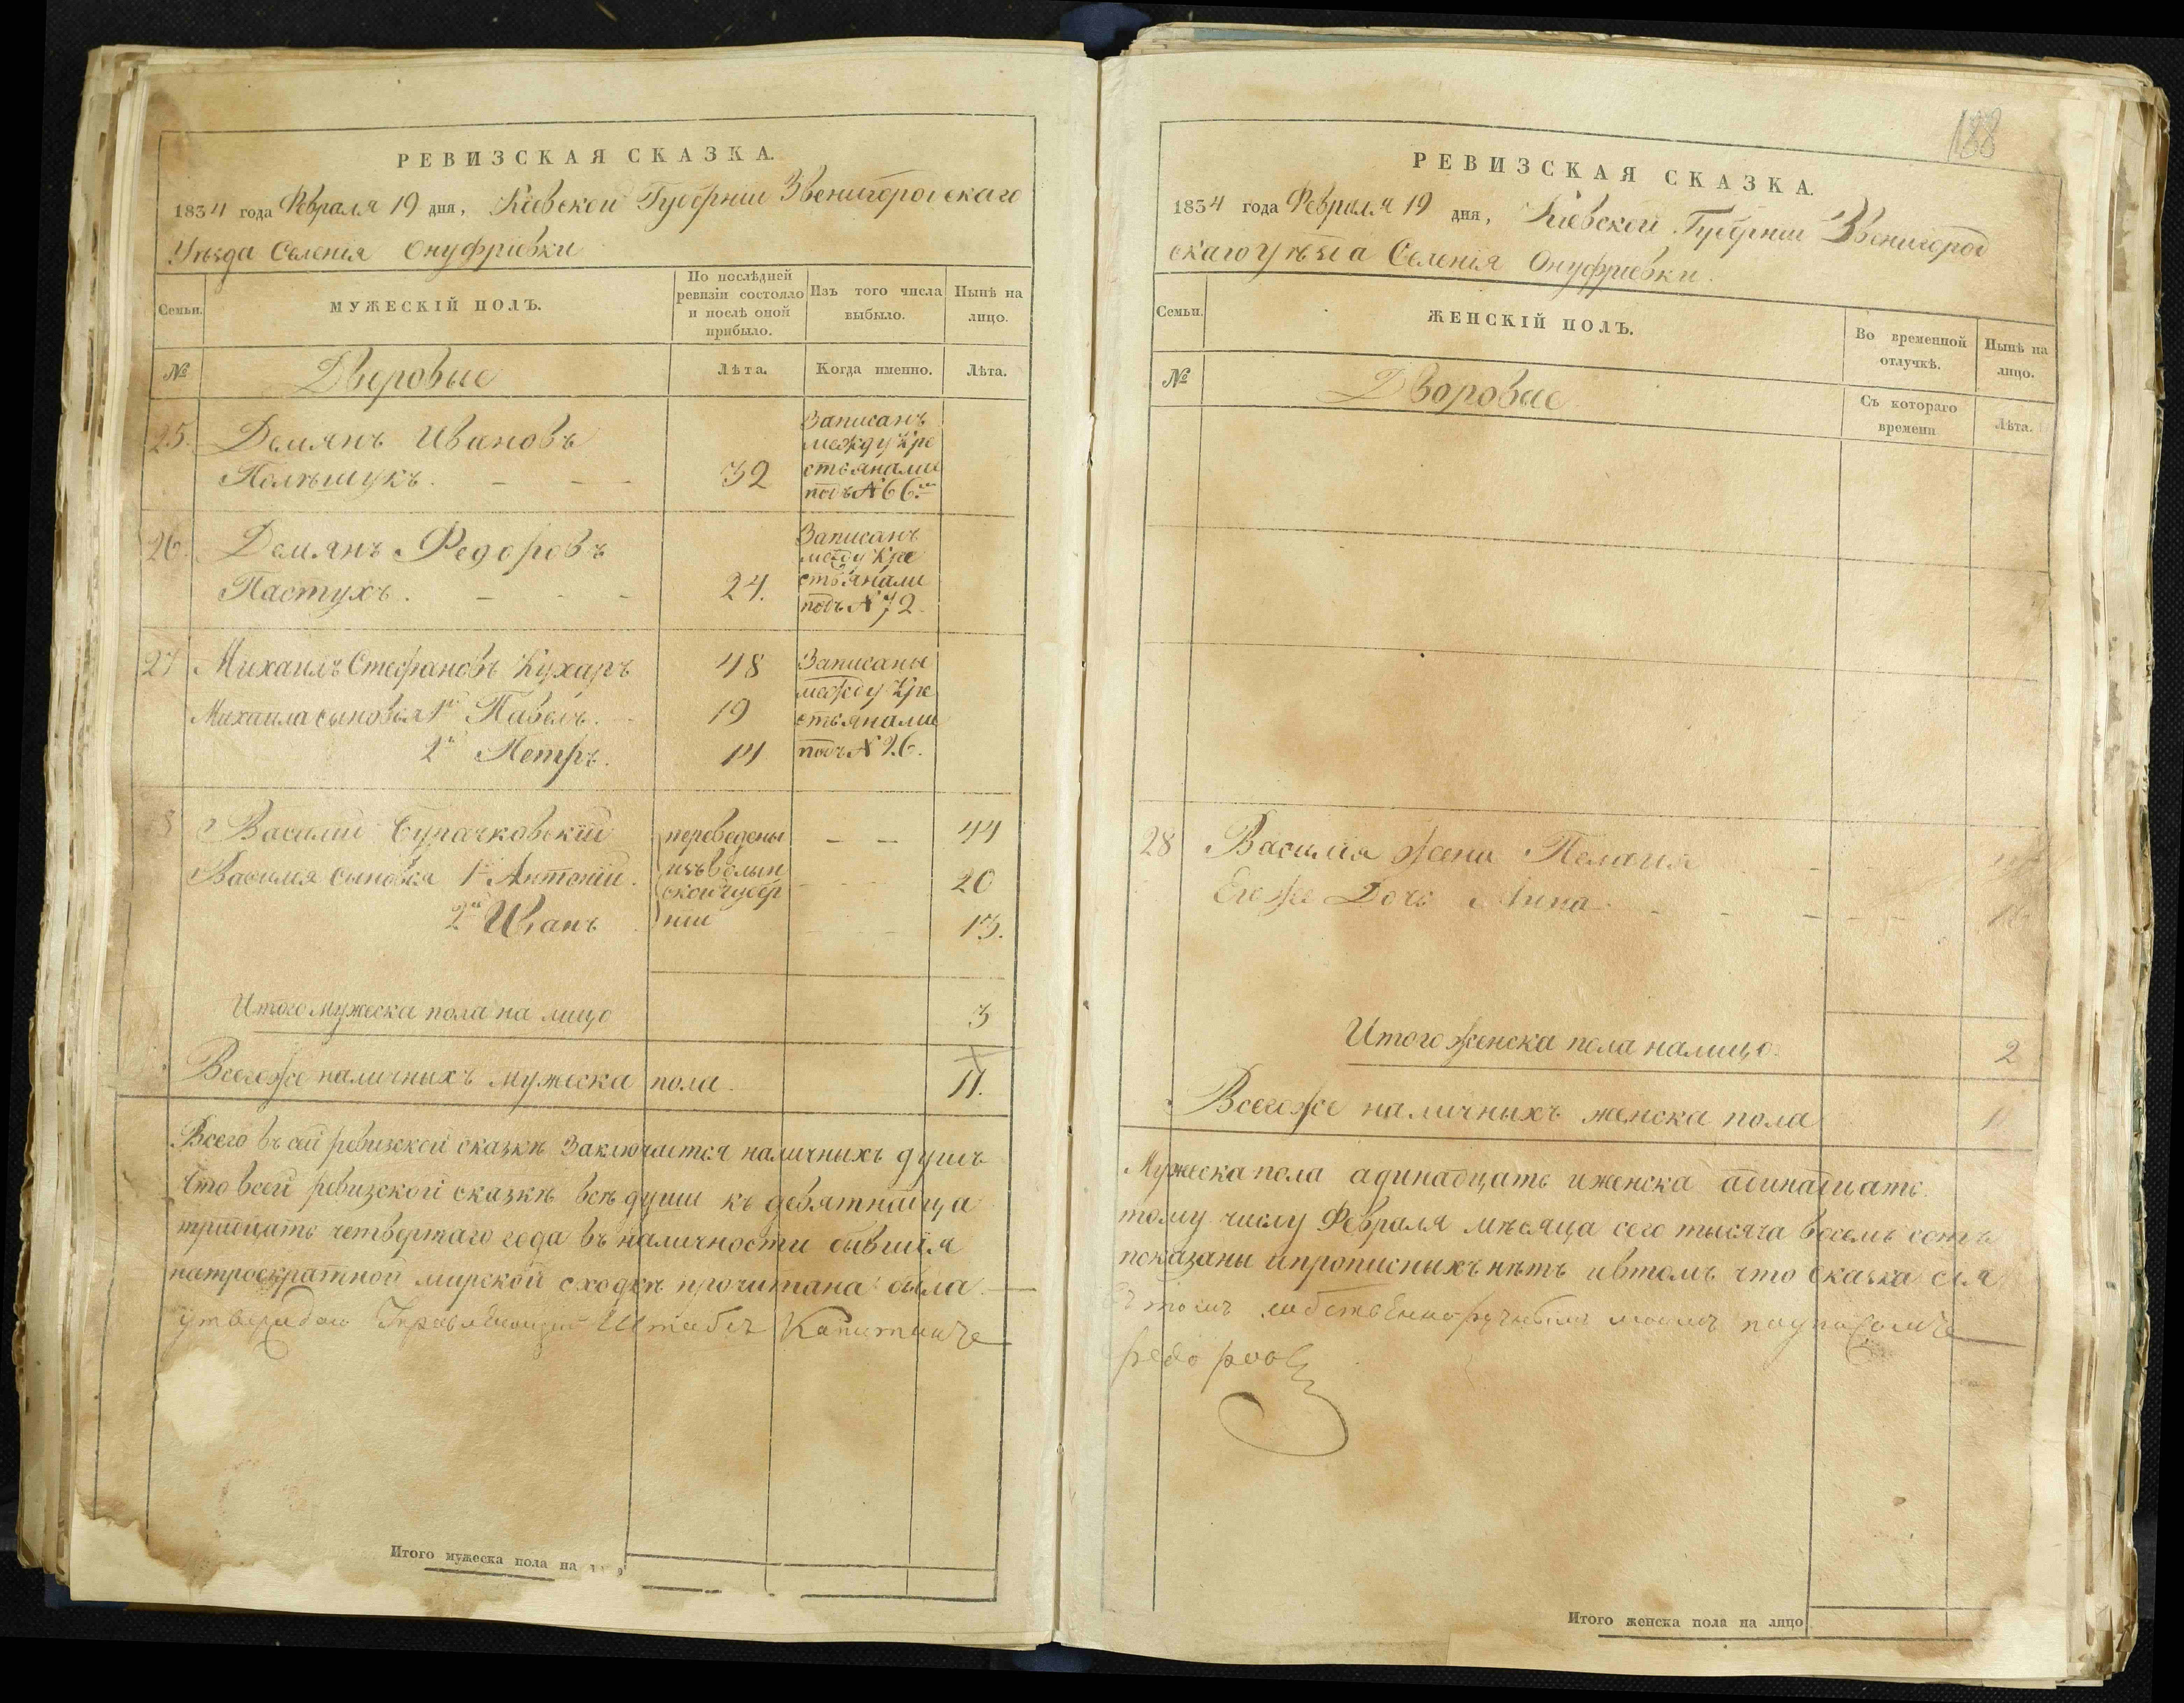 РЕВИЗСКАЯ СКАЗКА.
1834 года Февраля 19 дня, Кіевской Губерніи Звенигородскаго
Уѣзда Селенія Онуфріевки
Семьи.
МУЖЕСКІЙ ПОЛЪ.
По послѣдней ревизіи состояло и послѣ оной прибыло.
Изъ того числа выбыло.
Нынѣ на лицо.
№
Дворовые
Лѣта.
Когда именно.
Лѣта.
25. Демянъ Ивановъ
Полѣшукъ. - - - 32
Записанъ
между Кре
стьянами
подъ № 66.
26. Демянъ Федоровъ
Пастухъ. - - - 24.
Записанъ
между Кре
стьянами
подъ № 72.
27 Михаилъ Стефановъ Кухаръ 48
Михаила сыновья 1й Павелъ. 19
2й Петръ. 14
Записаны
между Кре
стьянами
подъ № 26.
Василій - - 44
Василия сыновья 1й Антоній. 20
2й Иванъ 13.
переведены
изъ Волын
ской губер
ніи
Итого мужеска пола на лицо 3
Всегоже наличныхъ мужеска пола. 11.
Всего въ сей ревизской сказкѣ заключается наличныхъ душъ
что всей ревизской сказкѣ всѣ души къ девятнадца
тридцать четвертаго года въ наличности бывшія
натроекратной мирской сходкѣ прочитана была
утверждаю Управляющий Штабсъ Капитанъ
188
РЕВИЗСКАЯ СКАЗКА.
1834 года Февраля 19 дня, Кіевской Губерніи Звенигород
скаго уѣзда Селенія Онуфріевки.
Семьи.
ЖЕНСКІЙ ПОЛЪ.
Во временной отлучкѣ.
Нынѣ на лицо.
№
Дворовые
Съ котораго времени
Лѣта.
28 Василія жена Пелагия
Его же Дочь Анна
Итого женска пола налицо. 2
Всегоже наличныхъ женска пола 11
Мужеска пола адинадцать иженска адинадцать.
тому числу Февраля мѣсяца сего тысяча восемь сотъ
показаны ипрописныхъ нѣтъ ивтомъ что сказка сія
въ томъ собственноручнымъ моимъ
Федоровъ
Итого мужеска пола на
Итого женска пола на лицо